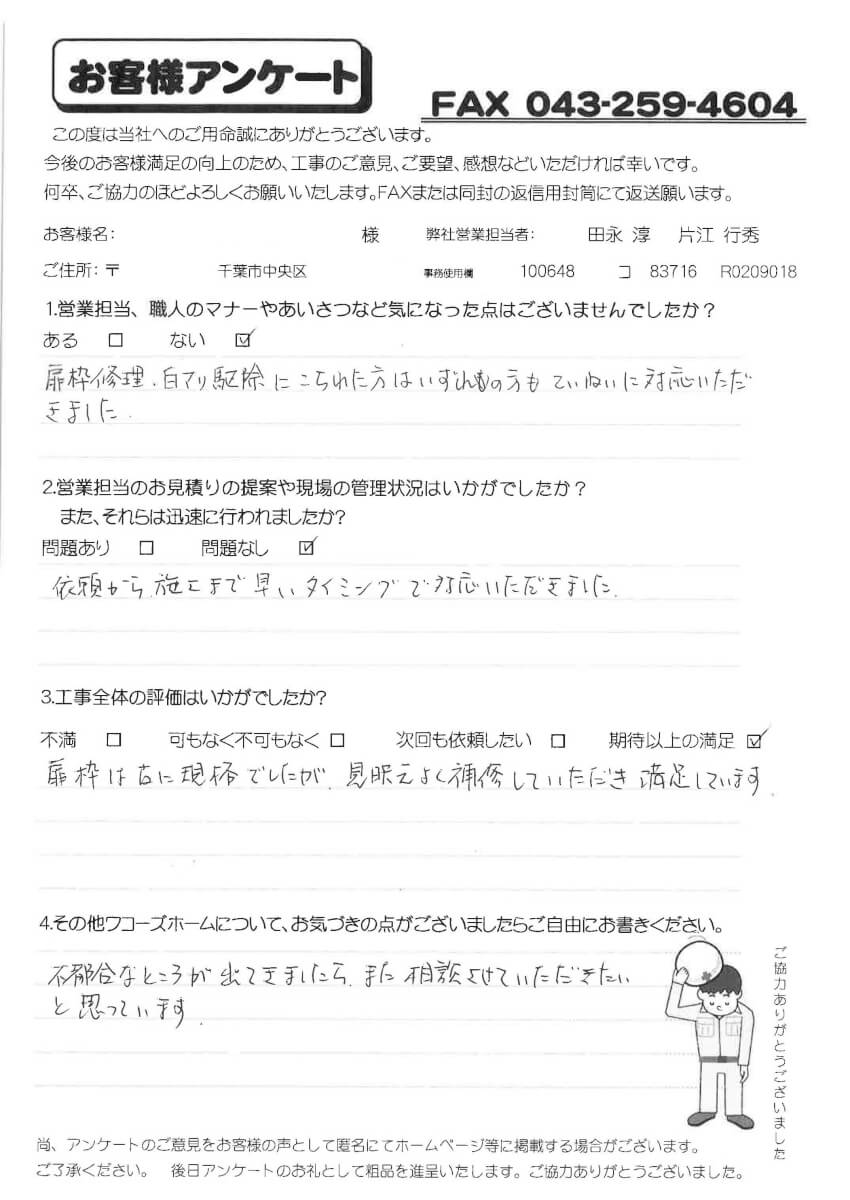 お客様アンケート
FAX 043-259-4604
この度は当社へのご用命誠にありがとうございます。
今後のお客様満足の向上のため、工事のご意見、ご要望、感想などいただければ幸いです。
何卒、ご協力のほどよろしくお願いいたします。FAXまたは同封の返信用封筒にて返送願います。
お客様名: 様 弊社営業担当者: 田永 淳 片江 行秀
ご住所:〒 千葉市中央区 事務使用欄 100648 コ 83716 R0209018
1.営業担当、職人のマナーやあいさつなど気になった点はございませんでしたか?
ある □ ない ☑
扉枠修理、白アリ駆除にこられた方はいずれもの方もていねいに対応いただ
きました.
2.営業担当のお見積りの提案や現場の管理状況はいかがでしたか?
また、それらは迅速に行われましたか?
問題あり □ 問題なし ☑
依頼から、施工まで早いタイミングで対応いただきました.
3.工事全体の評価はいかがでしたか?
不満 □ 可もなく不可もなく □ 次回も依頼したい □ 期待以上の満足 ☑
扉枠は でしたが、見映えよく補修していただき満足しています.
4.その他ワコーズホームについて、お気づきの点がございましたらご自由にお書きください。
不都合なところが出てきましたら、また相談させていただきたい
と思っています.
ご協力ありがとうございました
尚、アンケートのご意見をお客様の声として匿名にてホームページ等に掲載する場合がございます。
ご了承ください。 後日アンケートのお礼として粗品を進呈いたします。ご協力ありがとうございました。